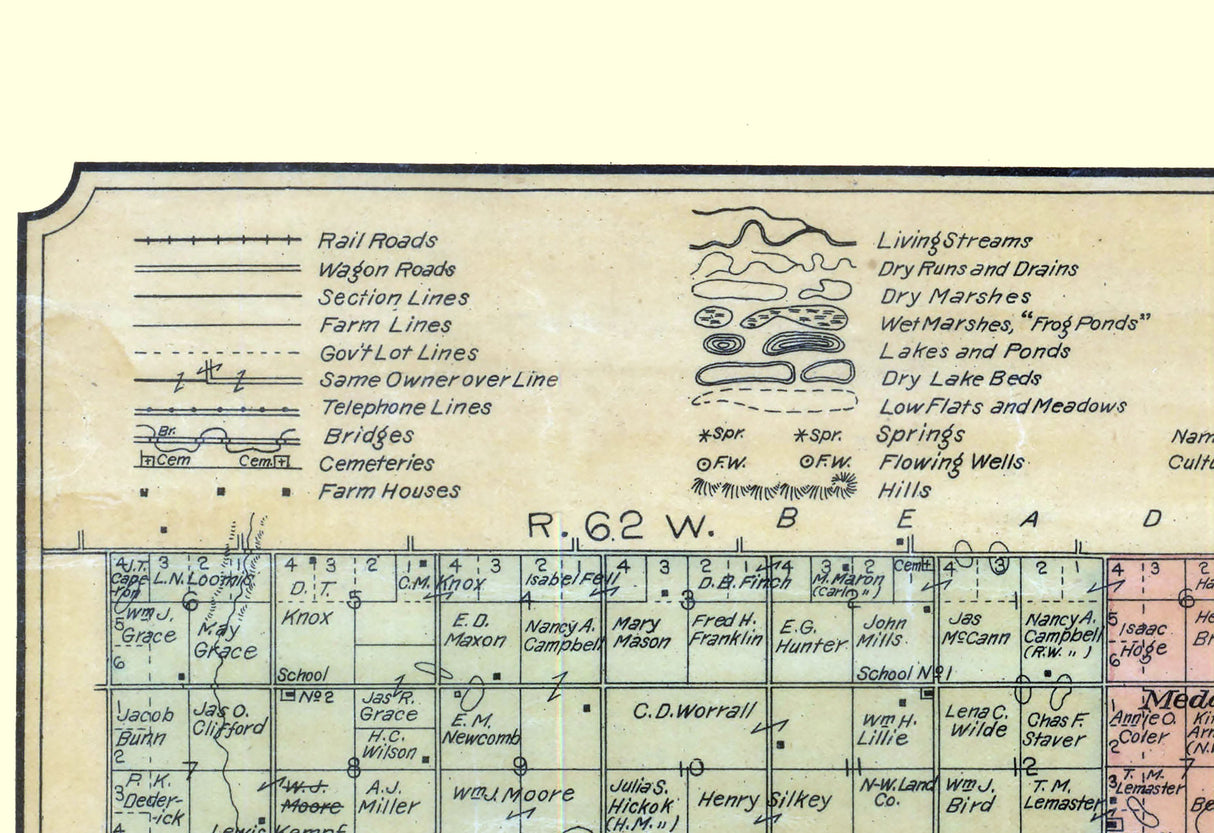 Rail Roads
Wagon Roads
Section Lines
Farm Lines
Gov't Lot Lines
Same Owner over Line
Telephone Lines
Br.
Bridges
Cem Cem.
Cemeteries
Farm Houses
Living Streams
Dry Runs and Drains
Dry Marshes
Wet Marshes, "Frog Ponds"
Lakes and Ponds
Dry Lake Beds
Low Flats and Meadows
*Spr. *Spr. Springs
F.W. F.W. Flowing Wells
Hills
Nam
Cultu
R. 62 W. B E A D
4 3 2 4 3 2 4 3 2 4 3 2 4 3 4 3 2 1 4 3 2
J.T.
Cape
ron
L.N. Loomis
D. T.
Knox
C.M. Knox
Isabel Fell
D.B. Finch
M. Maron
(Carln ")
Cem
6 5 4 3 2 1 6
5
Wm J.
Grace
6
May
Grace
School
No 2
E.D.
Maxon
Nancy A.
Campbell
Mary
Mason
Fred H.
Franklin
E.G.
Hunter
John
Mills
School No 1
Jas
McCann
Nancy A.
Campbell
(R.W. ")
5
Isaac
Hoge
6
He
Br
Jacob
Bunn
2
Jas O.
Clifford
Jas R.
Grace
H.C.
Wilson
E. M.
Newcomb
C.D. Worrall
Wm H.
Lillie
Lena C.
Wilde
Chas F.
Staver
Medo
1
Annie O.
Coler
2
Kin
Arn
(N.
7 8 9 10 11 12 7
3
P. K.
Deder-
ick
4
Lewis Kempf
W. J.
Moore
A.J.
Miller
Wm J. Moore
Julia S.
Hickok
(H.M. ")
Henry Silkey
N-W. Land
Co.
Wm J.
Bird
T. M.
Lemaster
3
T. M.
Lemaster
Be